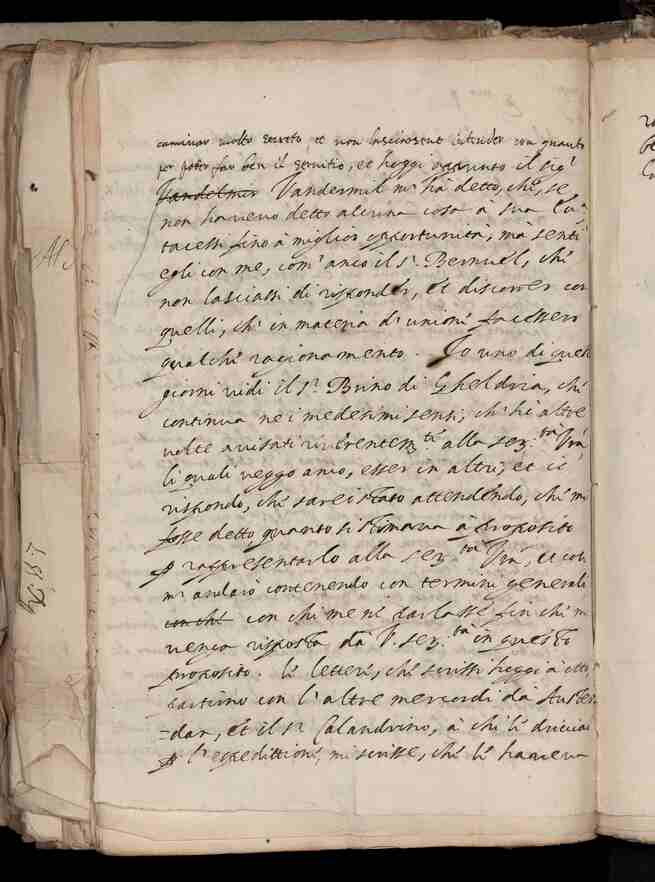 caminar molto secreto, et non lasciarsene intender con quanto
per poter far ben il servitio, et hoggi il Sigr
Vandelmir Vandermil m' ha detto, che, se
non havevo detto alcuna cosa à sua
tacessi fino à miglior opportunità; mà sentì
egli con me, com' anco il Sr. Bernuel, che
non lasciassi di risponder, et discorrer con
quelli, che in materia d' unione facessero
qualche ragionamento. Io uno di questi
giorni vidi il Sr. Bruno di Gheldria, che
continua nei medesimi sensi, ch' hò altre
volte avisati riverentemte. alla serta. Vra
li quali veggo anco, esser in altri; et io
rispondo, che sarei stato attendendo, che mi
fosse detto, quanto si stimava à proposito
p rappresentarlo alla serta. Vra, et così
m' andarò contenendo con termini generali
con chi con chi me ne parlasse fin che m
venga risposta dà V. serta. in questo
proposito. le lettere, che scrissi hoggi à otto
partirno con l' altre mercordi dà Auster
-dan, et il Sr. Calandrino, à chi le driciai
p l' espedittione, mi scrisse, che le haveva